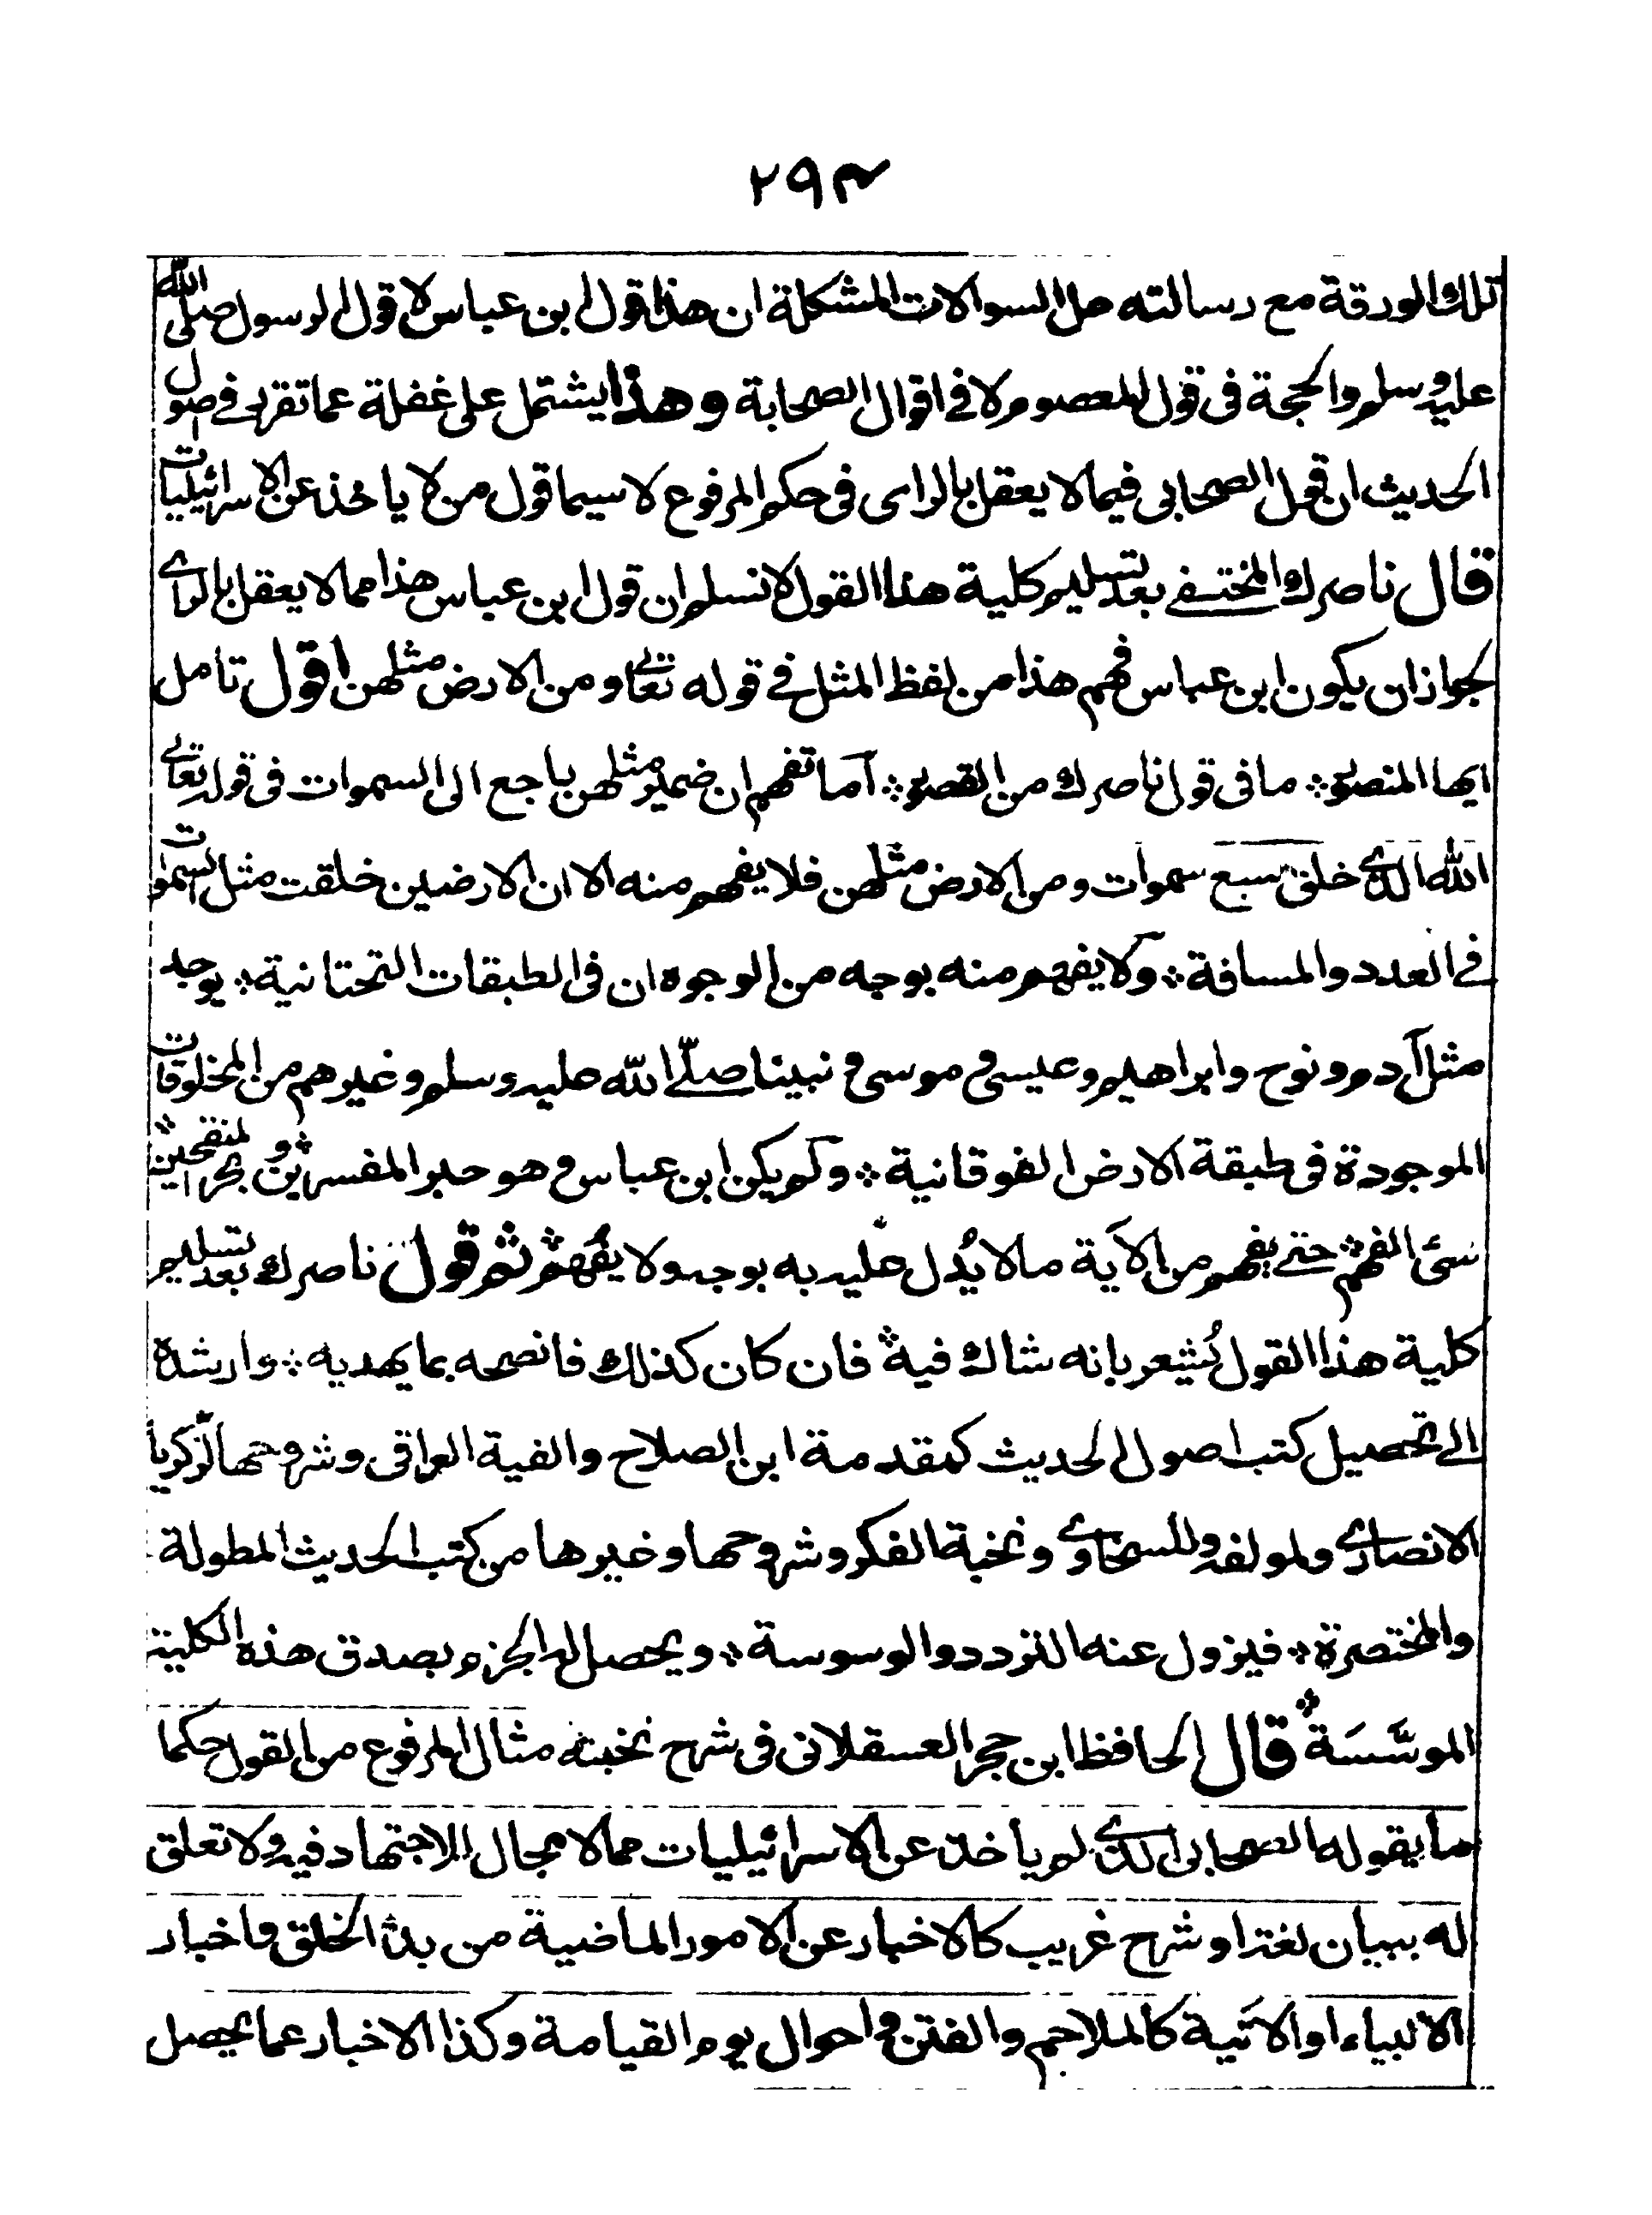 ٢٩٣
تلك الورقة مع رسالته حل السوالات المشكلة ان هذا قول ابن عباس لا قول الرسول صلى الله
عليه وسلم والحجة فى قول المعصوم لا فى اقوال الصحابة وهذا يشتمل على غفلة عما تقرر فى اصول
الحديث ان قول الصحابى فيما لا يعقل بالراى فى حكم المرفوع لا سيما قول من لا ياخذ عن الاسرائيليات
قال ناصرك المختفے بعد تسليم كلية هذا القول لا نسلم ان قول ابن عباس هذا مما لا يعقل بالراے
لجواز ان يكون ابن عباس فهم هذا من لفظ المثل فے قوله تعالے ومن الارض مثلهن اقول تامل
ايها المنصور ۞ ما فى قول ناصرك من القصور ۞ آما تفهم ان ضمير مثلهن راجع الى السموات فى قوله تعالے
الله الذے خلق سبع سموات ومن الارض مثلهن فلا يفهم منه الا ان الارضين خلقت مثل السموات
فے العدد والمسافة ۞ ولا يفهم منه بوجه من الوجوه ان فى الطبقات التحتانية ۞ يوجد
مثل آدم ونوح وابراهيم وعيسى وموسى ونبينا صلّے الله عليه وسلم وغيرهم من المخلوقات
الموجودة فى طبقة الارض الفوقانية ۞ ولم يكن ابن عباس وهو حبر المفسرين ۞ وبحر المنقحين ۞
سئ الفهم ۞ حتے يفهم من الآية ما لا يُدل عليه به بوجه ولا يفُهم ۞ ثم قول ناصرك بعد تسليم
كلية هذا القول يُشعر بانه شاك فيه ۞ فان كان كذلك فانصحه بما يهديه ۞ وارشده
الے تحصيل كتب اصول الحديث كمقدمة ابن الصلاح والفية العراقى وشروحها لزكريا
الانصارے ولمولفه وللسخاوے ونخبة الفكر وشروحها وغيرها من كتب الحديث المطولة
والمختصرة ۞ فيزول عنه التردد والوسوسة ۞ ويحصل له الجزم بصدق هذه الكلية
الموسَّسَة ۞ قال الحافظ ابن حجر العسقلانى فى شرح نخبته مثال المرفوع من القول حكما
ما يقوله الصحابى الذے لم يأخذ عن الاسرائيليات مما لا مجال للاجتهاد فيه ولا تعلق
له ببيان لغة او شرح غريب كالاخبار عن الامور الماضية من بدأ الخلق واخبار
الانبياء او الآتية كالملاحم والفتن واحوال يوم القيامة وكذا الاخبار عما يحصل